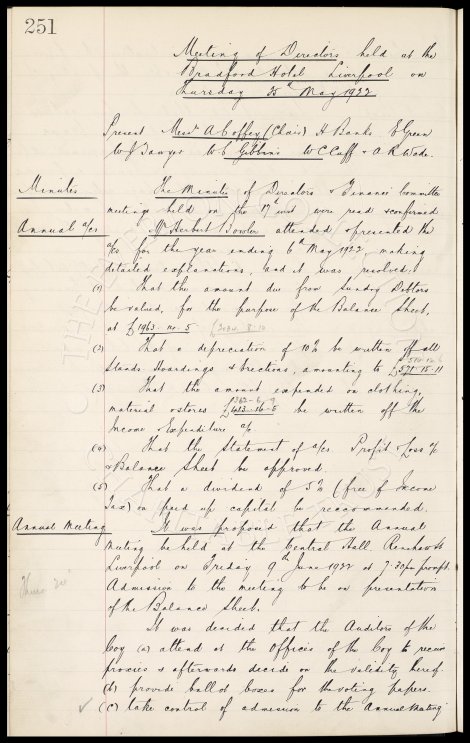 251
Meeting of Directors held at the
Bradford Hotel Liverpool on
Thursday 25th May 1922
Present Messrs A Coffey (Chair) H Banks E Green
W J Sawyer W E Gibbins W C Cuff & A R Wade.
Minutes The Minutes of Directors & Finance Committee
meetings held on the 17th inst were read & confirmed
Annual a/cs Mr Herbert Bowler attended & presented the
a/cs for the year ending 6th May 1922, making
detailed explanations, and it was resolved:
(1) That the amount due from Sundry Debtors
be valued, for the purpose of the Balance Sheet,
at £1963 - 5
(2) That a depreciation of 10% be written off all
Stands Hoardings & Erections, amounting to £571-15-11
(3) That the amount expended on clothing,
material & stores £ be written off the
Income & Expenditure a/c
(4) That the Statement of a/cs Profit & Loss a/c
& Balance Sheet be approved.
(5) That a dividend of 5% (free of Income
Tax) on paid up capital be recommended.
Annual Meeting It was proposed that the Annual
Meeting be held at the Central Hall Renshaw St
Liverpool on Friday 9th June 1922 at 7-30pm prompt
Admission to the meeting to be on presentation
of the Balance Sheet.
It was decided that the Auditors of the
Coy (a) attend at the Offices of the Coy to receive
proxies & afterwards decide on the validity hereof
(b) provide ballot boxes for the voting papers.
(c) take control of admission to the Annual Meeting